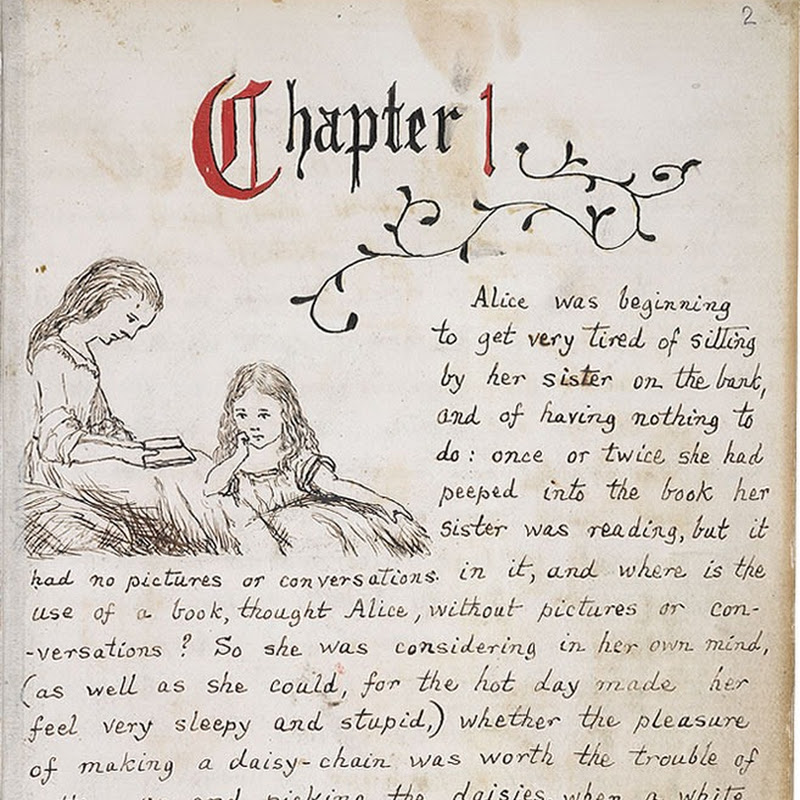 2
Chapter 1
Alice was beginning
to get very tired of sitting
by her sister on the bank,
and of having nothing to
do: once or twice she had
peeped into the book her
sister was reading, but it
had no pictures or conversations in it, and where is the
use of a book, thought Alice, without pictures or con-
-versations? So she was considering in her own mind,
(as well as she could, for the hot day made her
feel very sleepy and stupid,) whether the pleasure
of making a daisy-chain was worth the trouble of
and picking the daisies when a white